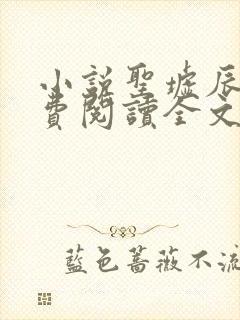 小說聖墟辰
費閱讀全文
藍色薔薇不流